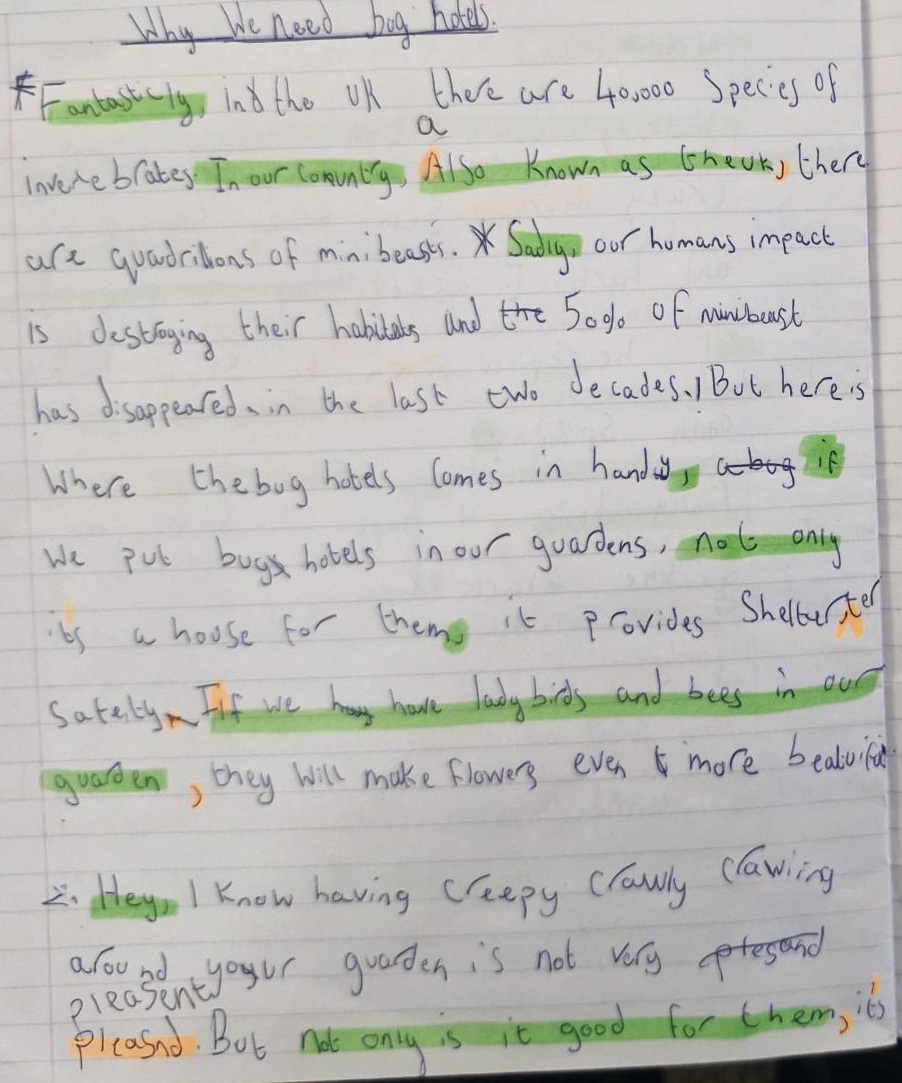 Why We need bug hotels.
*Fantasticly, in the UK there are 40,000 Species of
a
invertebrates. In our Comunty, Also Known as the uk, there
are quadrillions of minibeasts. * Sadly, our humans impact
is destroying their habitats and the 50% of minibeast
has disappeared in the last two decades. But here is
Where the bug hotels Comes in handy, a bug if
We put bugs hotels in our guardens, not only
it's a house for them, it provides Shelter
Safety If we hay have ladybirds and bees in our
guarden, they Will make flowers even more
2. Hey, I Know having Creepy Crawly Crawling
around your guarden is not very plesand
pleasent
pleasnd. But not only is it good for them, it's